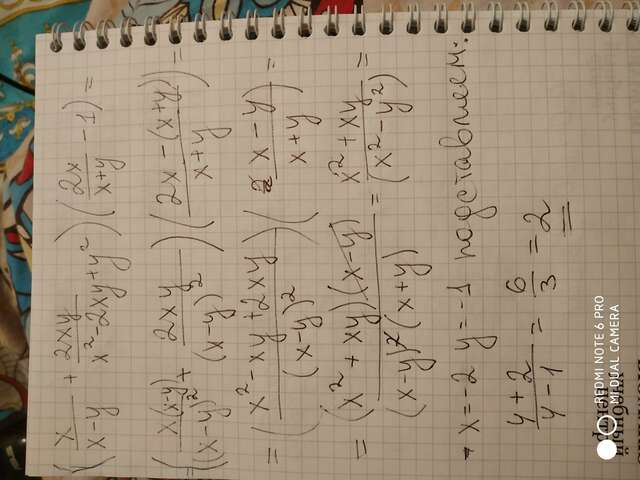 (x/(x-y) + 2xy/(x²-2xy+y²)) (2x/(x+y) - 1) =
(x(x-y)/(x-y)² + 2xy/(x-y)²) (2x-(x+y)/(x+y)) =
= (x²-xy+2xy/(x-y)²) (x-y/(x+y)) =
= (x²+xy)(x-y)/(x-y)²(x+y) = x²+xy/(x²-y²) =
x=-2 y=-1 подставляем:
4+2/4-1 = 6/3 = 2
REDMI NOTE 6 PRO
MI DUAL CAMERA